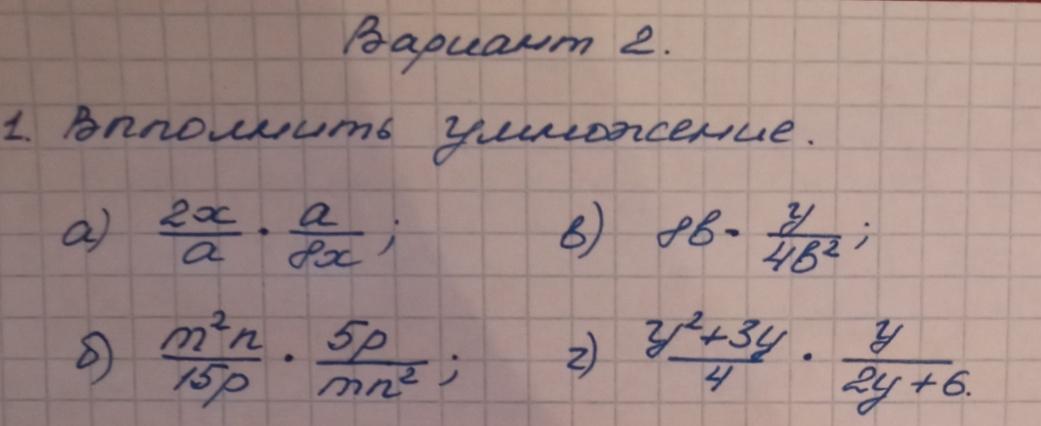 Вариант 2.
1. Выполнить умножение.
а) 2x/a · a/8x; в) 8b · y/4b²;
б) m²n/15p · 5p/mn²; г) y²+3y/4 · y/2y+6.